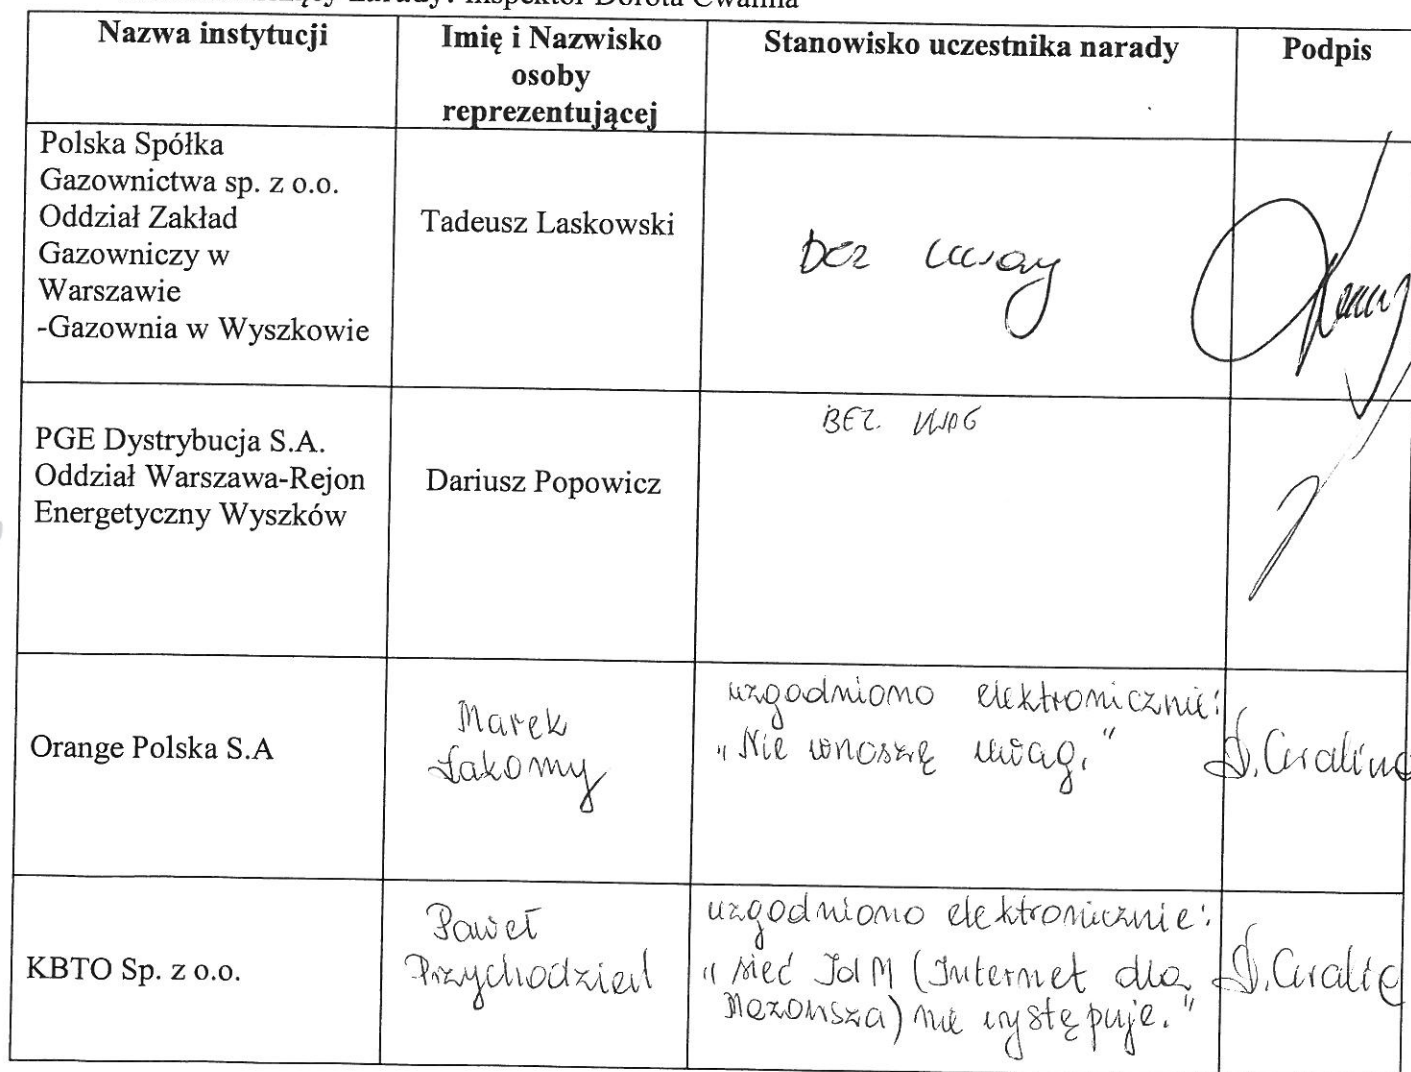 narady: Inspektor Dorota Cwalina
Nazwa instytucji
Imię i Nazwisko
osoby
reprezentującej
Stanowisko uczestnika narady
Podpis
Polska Spółka
Gazownictwa sp. z o.o.
Oddział Zakład
Gazowniczy w
Warszawie
-Gazownia w Wyszkowie
Tadeusz Laskowski
bez uwag
PGE Dystrybucja S.A.
Oddział Warszawa-Rejon
Energetyczny Wyszków
Dariusz Popowicz
BEZ UWAG
Orange Polska S.A
Marek
Łakomy
uzgodniono elektronicznie:
„Nie wnoszę uwag."
D. Cwalina
KBTO Sp. z o.o.
Paweł
Przychodzień
uzgodniono elektronicznie:
„sieć IdM (Internet dla
Mazowsza) nie występuje."
D. Cwalina